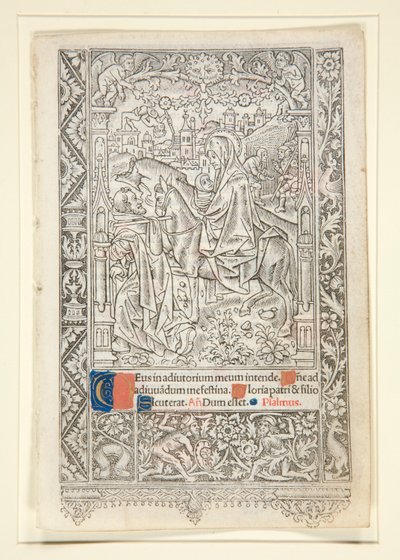 DEus in adiutorium meum intende. Dñe ad
adiuuãdum me festina. Gloria patri & filio
Sicut erat. Añ Dum esset. Psalmus.